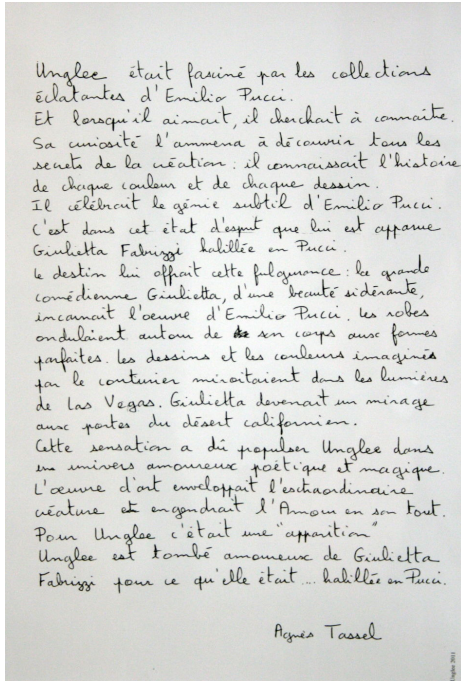 Unglee était fasciné par les collections
éclatantes d'Emilio Pucci.
Et lorsqu'il aimait, il cherchait à connaître.
Sa curiosité l'ammena à découvrir tous les
secrets de la création : il connaissait l'histoire
de chaque couleur et de chaque dessin.
Il célébrait le génie subtil d'Emilio Pucci.
C'est dans cet état d'esprit que lui est apparue
Giulietta Fabrizzi habillée en Pucci.
Le destin lui offrait cette fulgurance : la grande
comédienne Giulietta, d'une beauté sidérante,
incarnait l'oeuvre d'Emilio Pucci. Les robes
ondulaient autour de son corps aux formes
parfaites. Les dessins et les couleurs imaginés
par le couturier miroitaient dans les lumières
de Las Vegas. Giulietta devenait un mirage
aux portes du désert californien.
Cette sensation a dû propulser Unglee dans
un univers amoureux poëtique et magique.
L'œuvre d'art enveloppait l'extraordinaire
créature et engendrait l'Amour en son tout.
Pour Unglee c'était une "apparition"
Unglee est tombé amoureux de Giulietta
Fabrizzi pour ce qu'elle était... habillée en Pucci.
Agnès Tassel
Unglee 2011